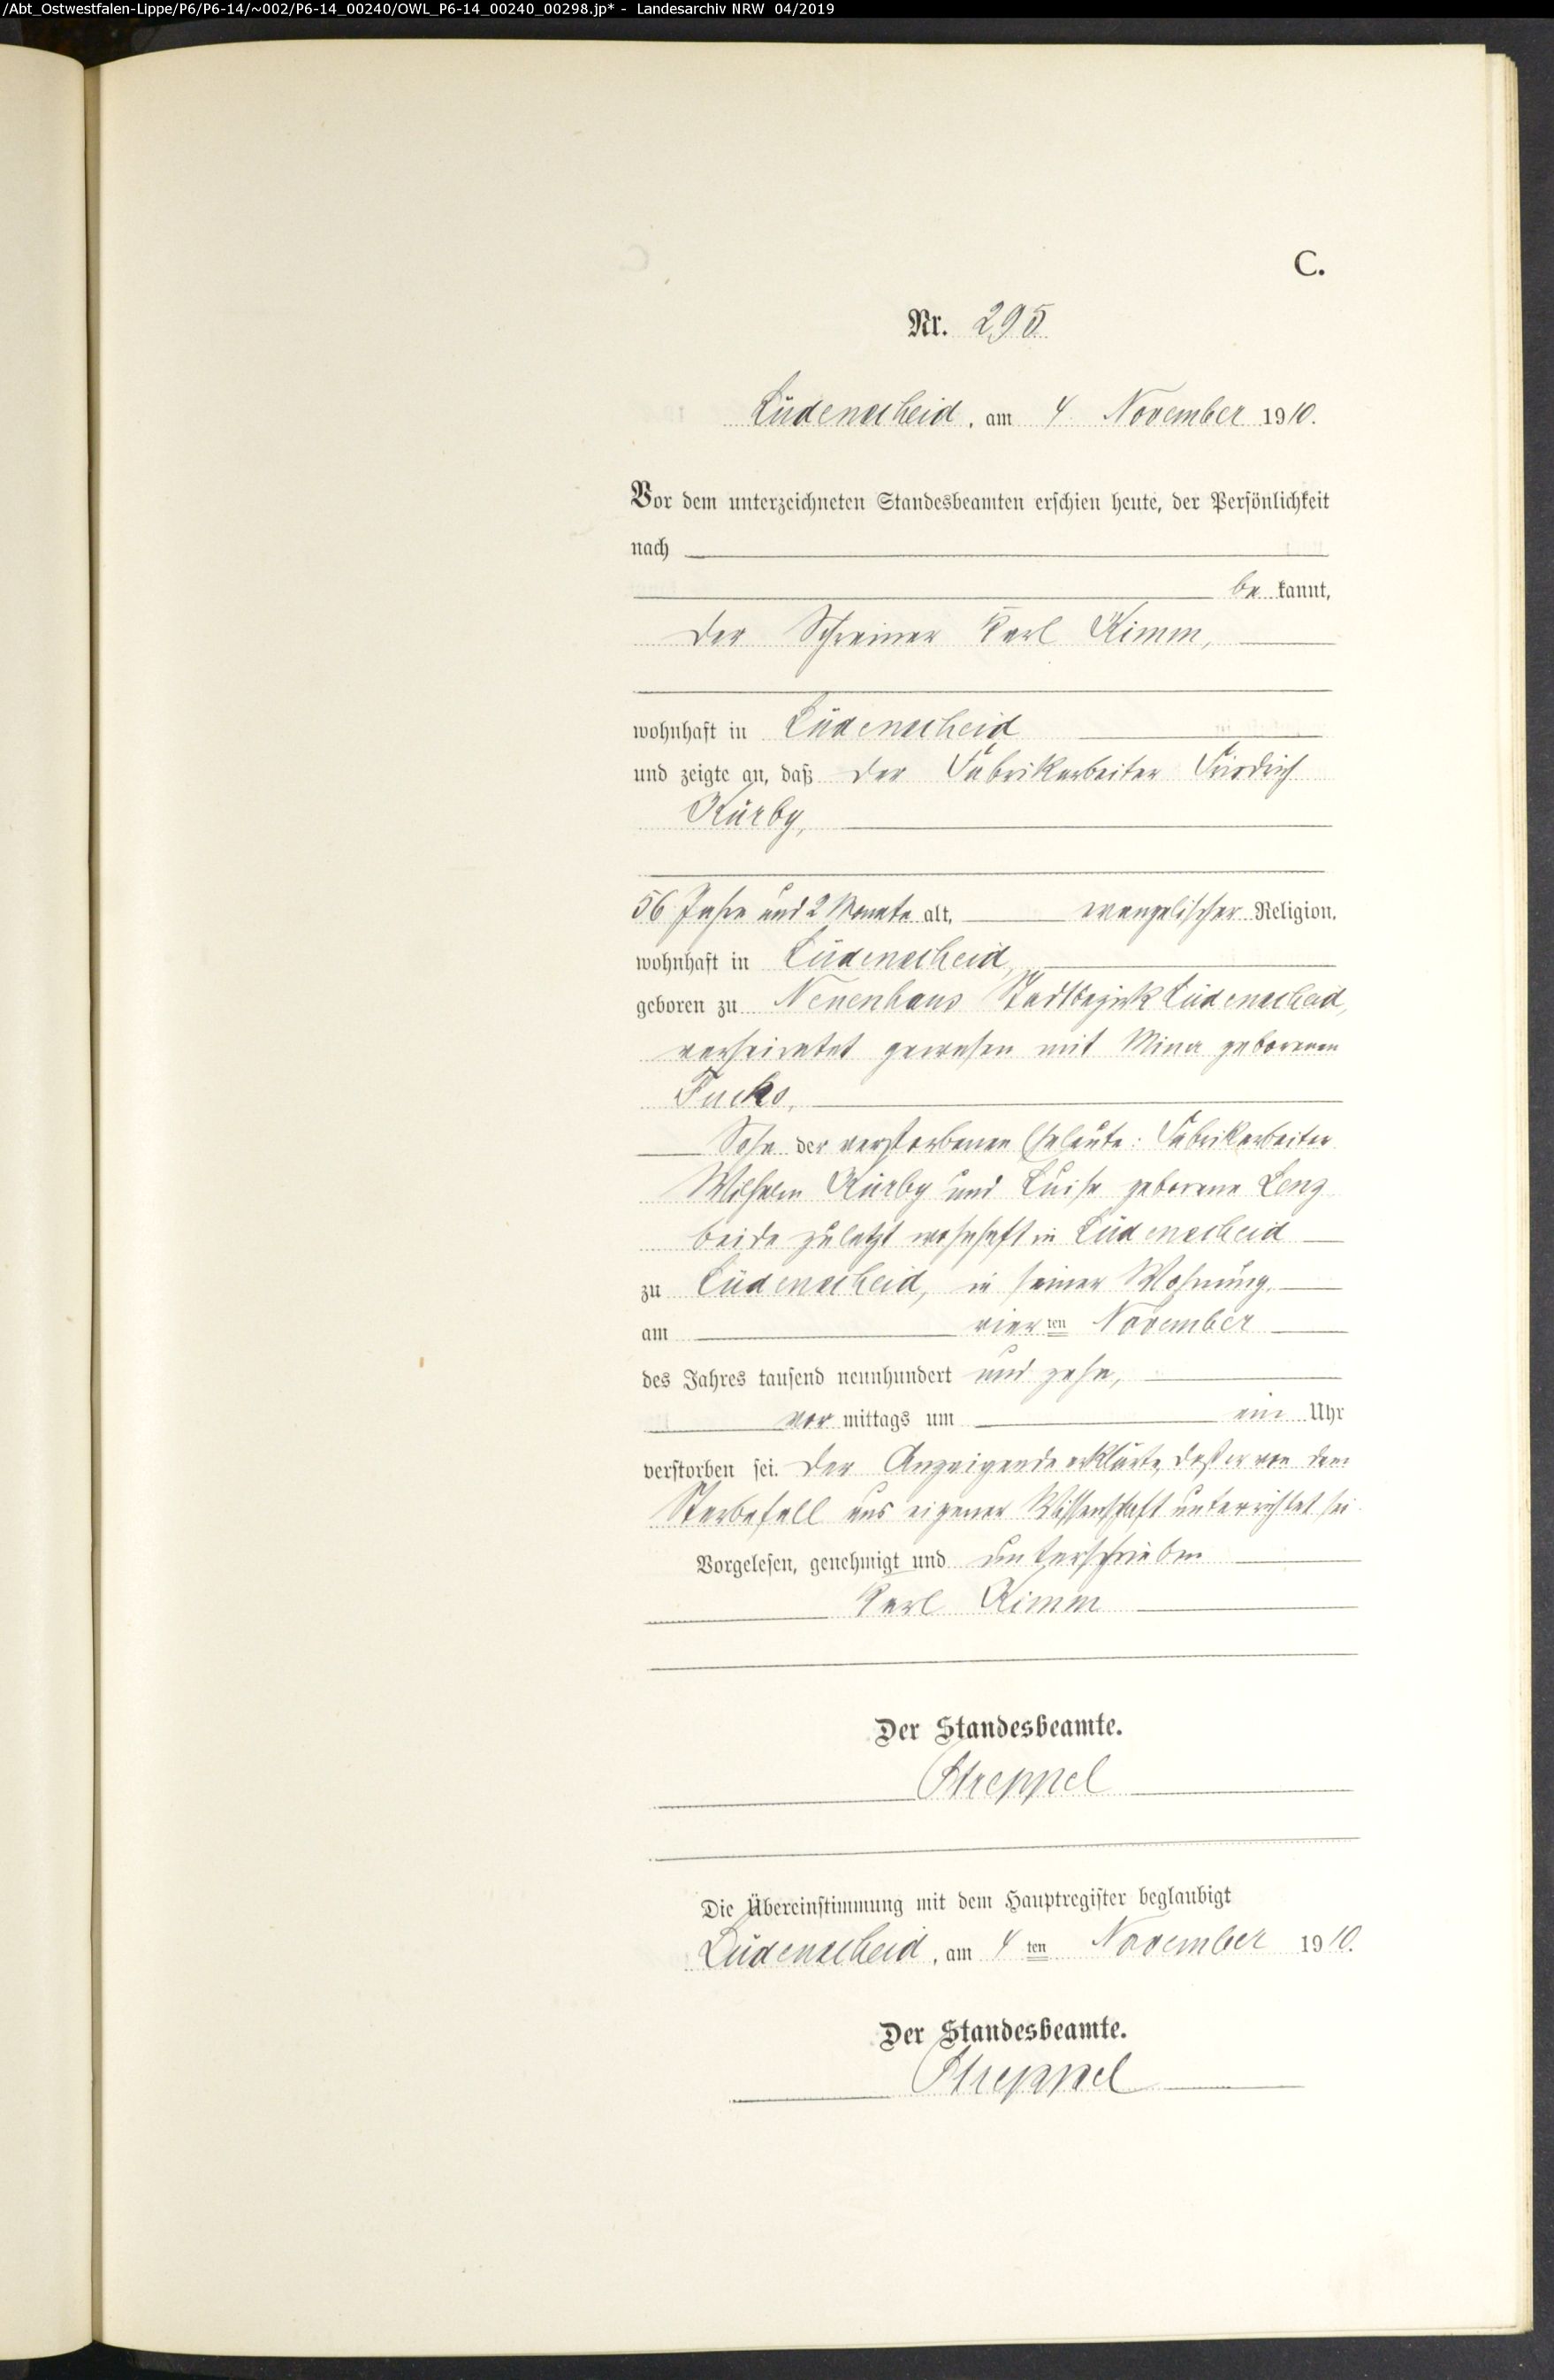 /Abt_Ostwestfalen-Lippe/P6/P6-14/~002/P6-14_00240/OWL_P6-14_00240_00298.jp* - Landesarchiv NRW 04/2019
C.
Nr. 295
Lüdenscheid, am 4 November 1910.
Vor dem unterzeichneten Standesbeamten erschien heute, der Persönlichkeit
nach
be kannt,
der Schreiner Karl Kimm,
wohnhaft in Lüdenscheid
und zeigte an, daß der Fabrikarbeiter Friedrich
Kürby,
56 Jahre und 2 Monate alt, evangelischer Religion,
wohnhaft in Lüdenscheid,
geboren zu Neuenhaus Stadtbezirk Lüdenscheid,
verheiratet gewesen mit Mina geborenen
Fucks,
Sohn der verstorbenen Eheleute: Fabrikarbeiter
Wilhelm Kürby und Luise geborene Lenz
beide zuletzt wohnhaft in Lüdenscheid
zu Lüdenscheid, in seiner Wohnung,
am vier ten November
des Jahres tausend neunhundert und zehn,
vor mittags um ein Uhr
verstorben sei. Der Anzeigende erklärte, daß er von dem
Sterbefall aus eigener Wissenschaft unterrichtet sei
Vorgelesen, genehmigt und unterschrieben
Karl Kimm
Der Standesbeamte.
Streppel
Die Übereinstimmung mit dem Hauptregister beglaubigt
Lüdenscheid, am 4 ten November 1910.
Der Standesbeamte.
Streppel